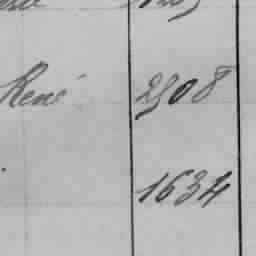 René 2908
1634